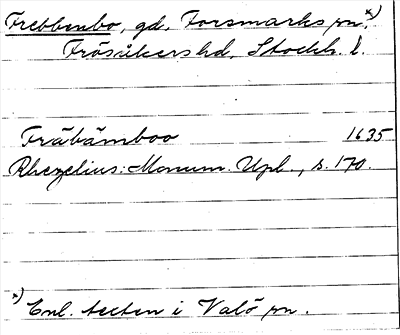 Frebbenbo, gd, Forsmarks sn. x)
Frösåkers hd, Stockh. l.
Träbämboo 1635
Rhezelius: Monum. Upl., s. 170.
x) Enl. texten i Valö sn.